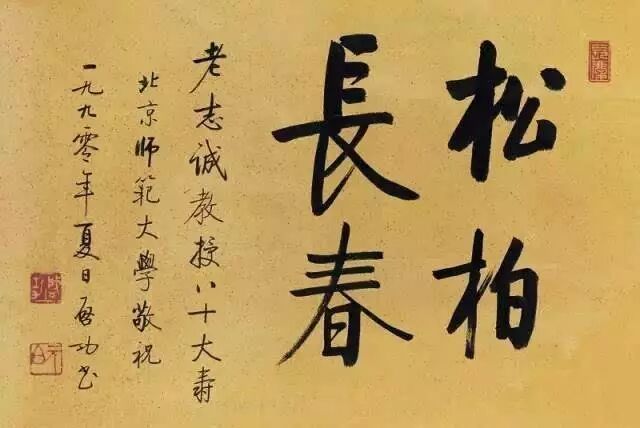 松柏
長春
老志诚教授八十大寿
北京师範大學敬祝
一九九零年夏日啓功书